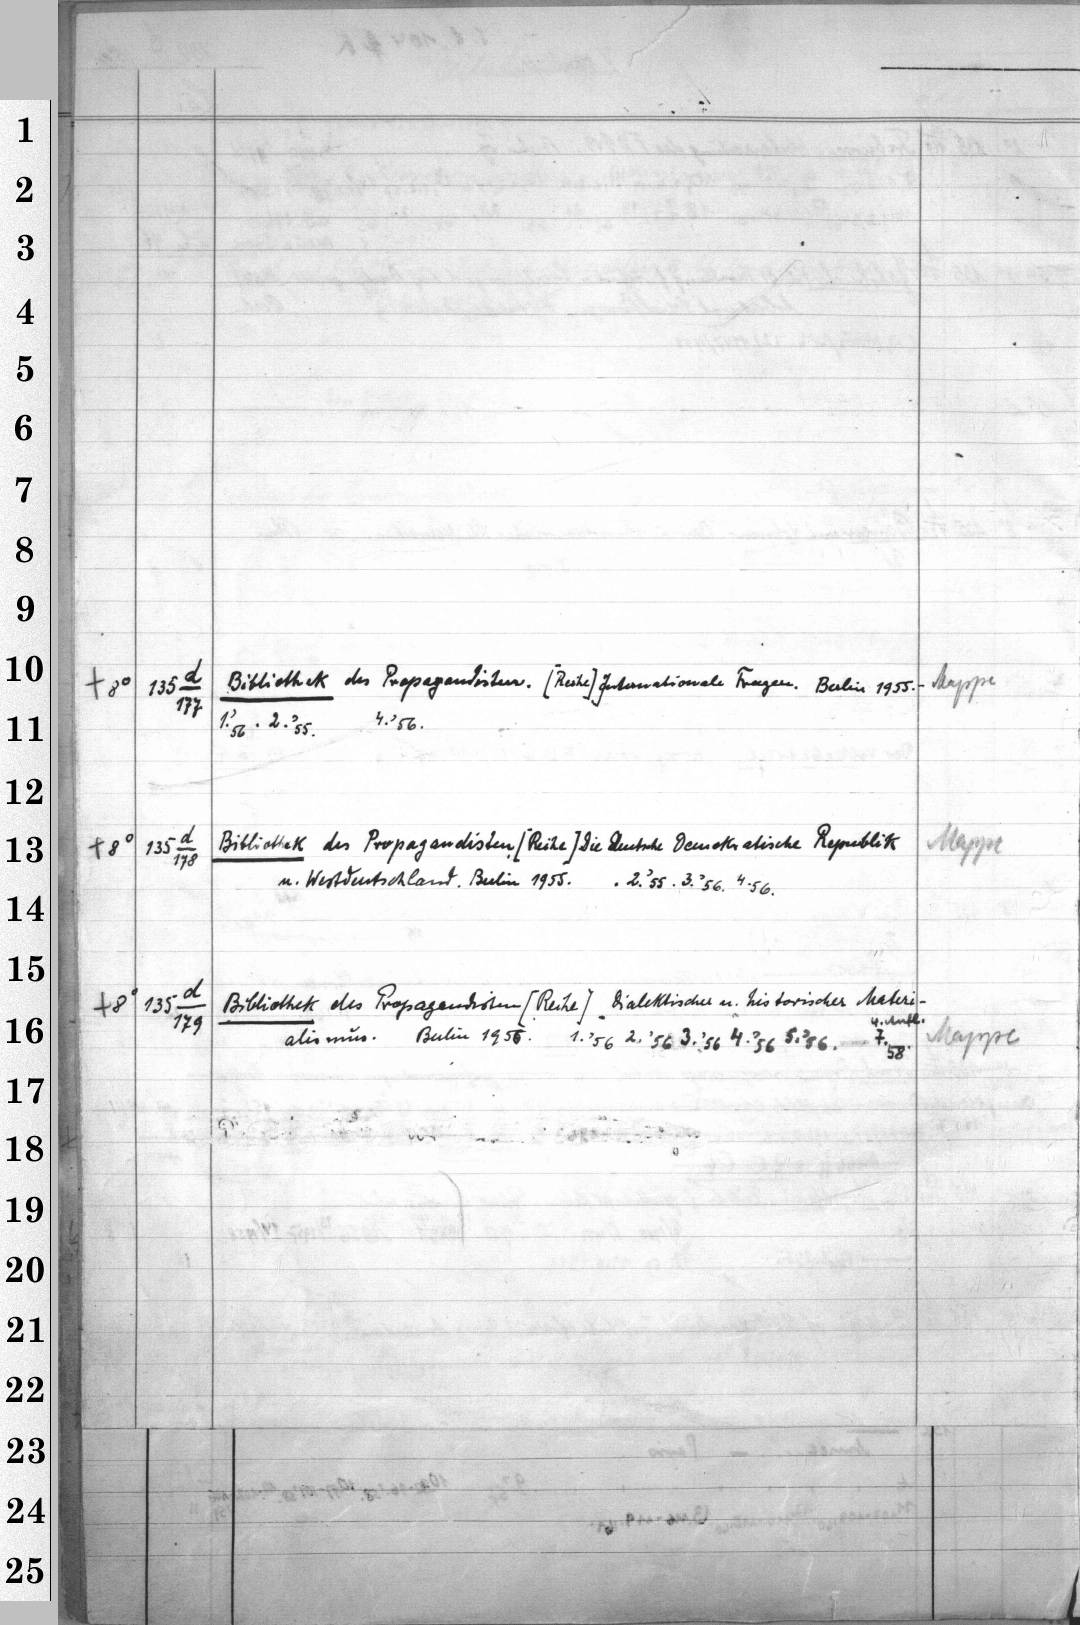 1
2
3
4
5
6
7
8
9
10
11
12
13
14
15
16
17
18
19
20
21
22
23
24
25
+ 8° 135 d/177 Bibliothek des Propagandisten. [Reihe] Internationale Fragen. Berlin 1955.- Mappe
1.'56 . 2.'55. 4.'56.
+ 8° 135 d/178 Bibliothek des Propagandisten, [Reihe] Die Deutsche Demokratische Republik Mappe
u. Westdeutschland. Berlin 1955. . 2.'55 . 3.'56. 4.56.
+ 8° 135 d/179 Bibliothek des Propagandisten [Reihe] Dialektischer u. historischer Materi-
alismus. Berlin 1956. 1.'56 2.'56 3.'56 4.'56 5.'56. 4. Aufl. 7.58. Mappe